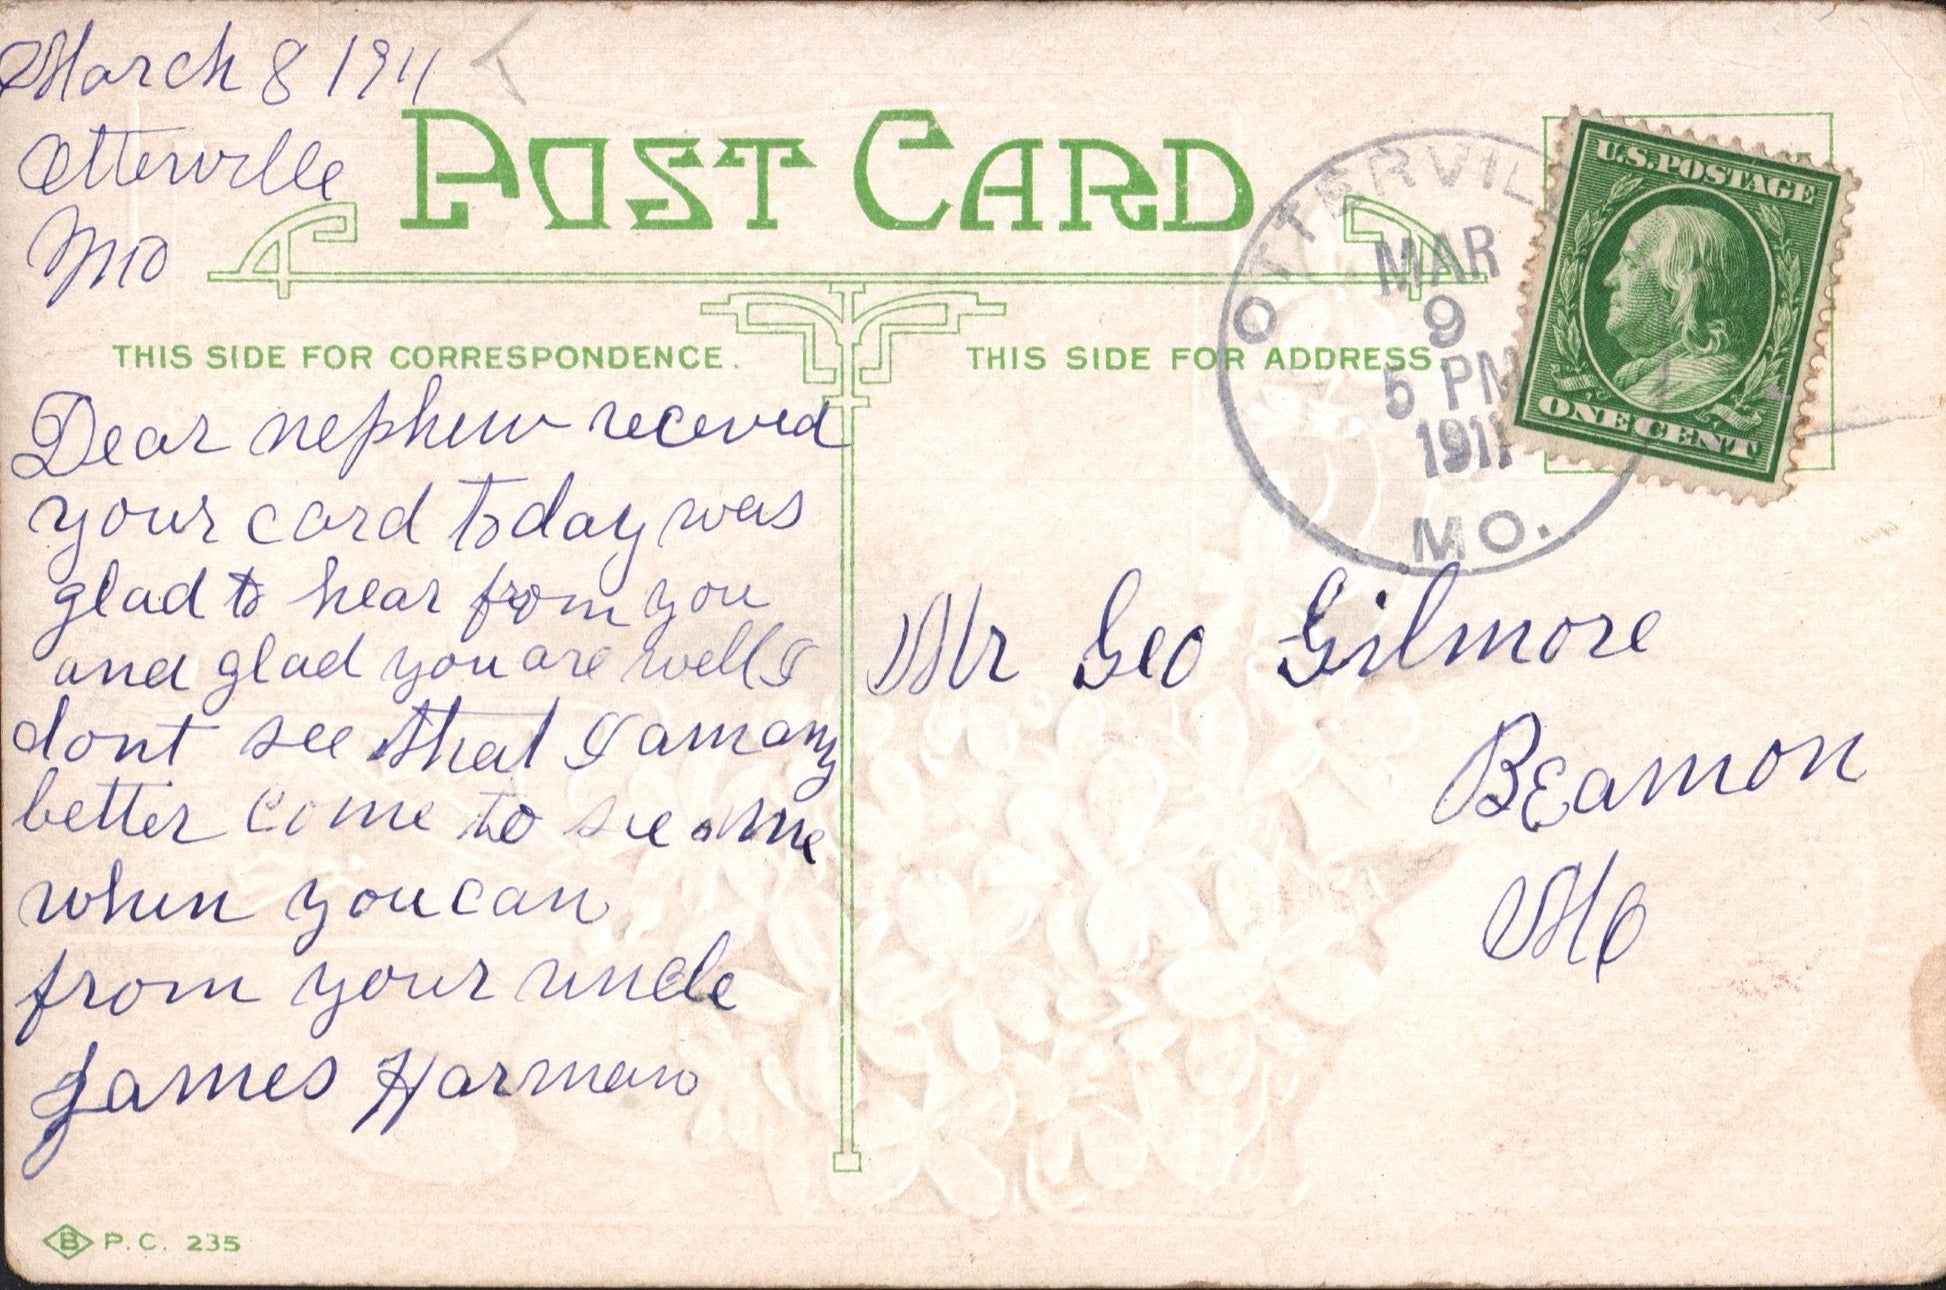 March 8 1911
Otterville
Mo
POST CARD
THIS SIDE FOR CORRESPONDENCE.
Dear nephew receved
your card today was
glad to hear from you
and glad you are well I
dont see that I am any
better come to see me
when you can
from your uncle
James Harman
B P.C. 235
THIS SIDE FOR ADDRESS.
OTTERVIL
MAR
9
5 PM
1911
MO.
U.S. POSTAGE
ONE CENT
Mr Geo Gilmore
Beamon
Mo